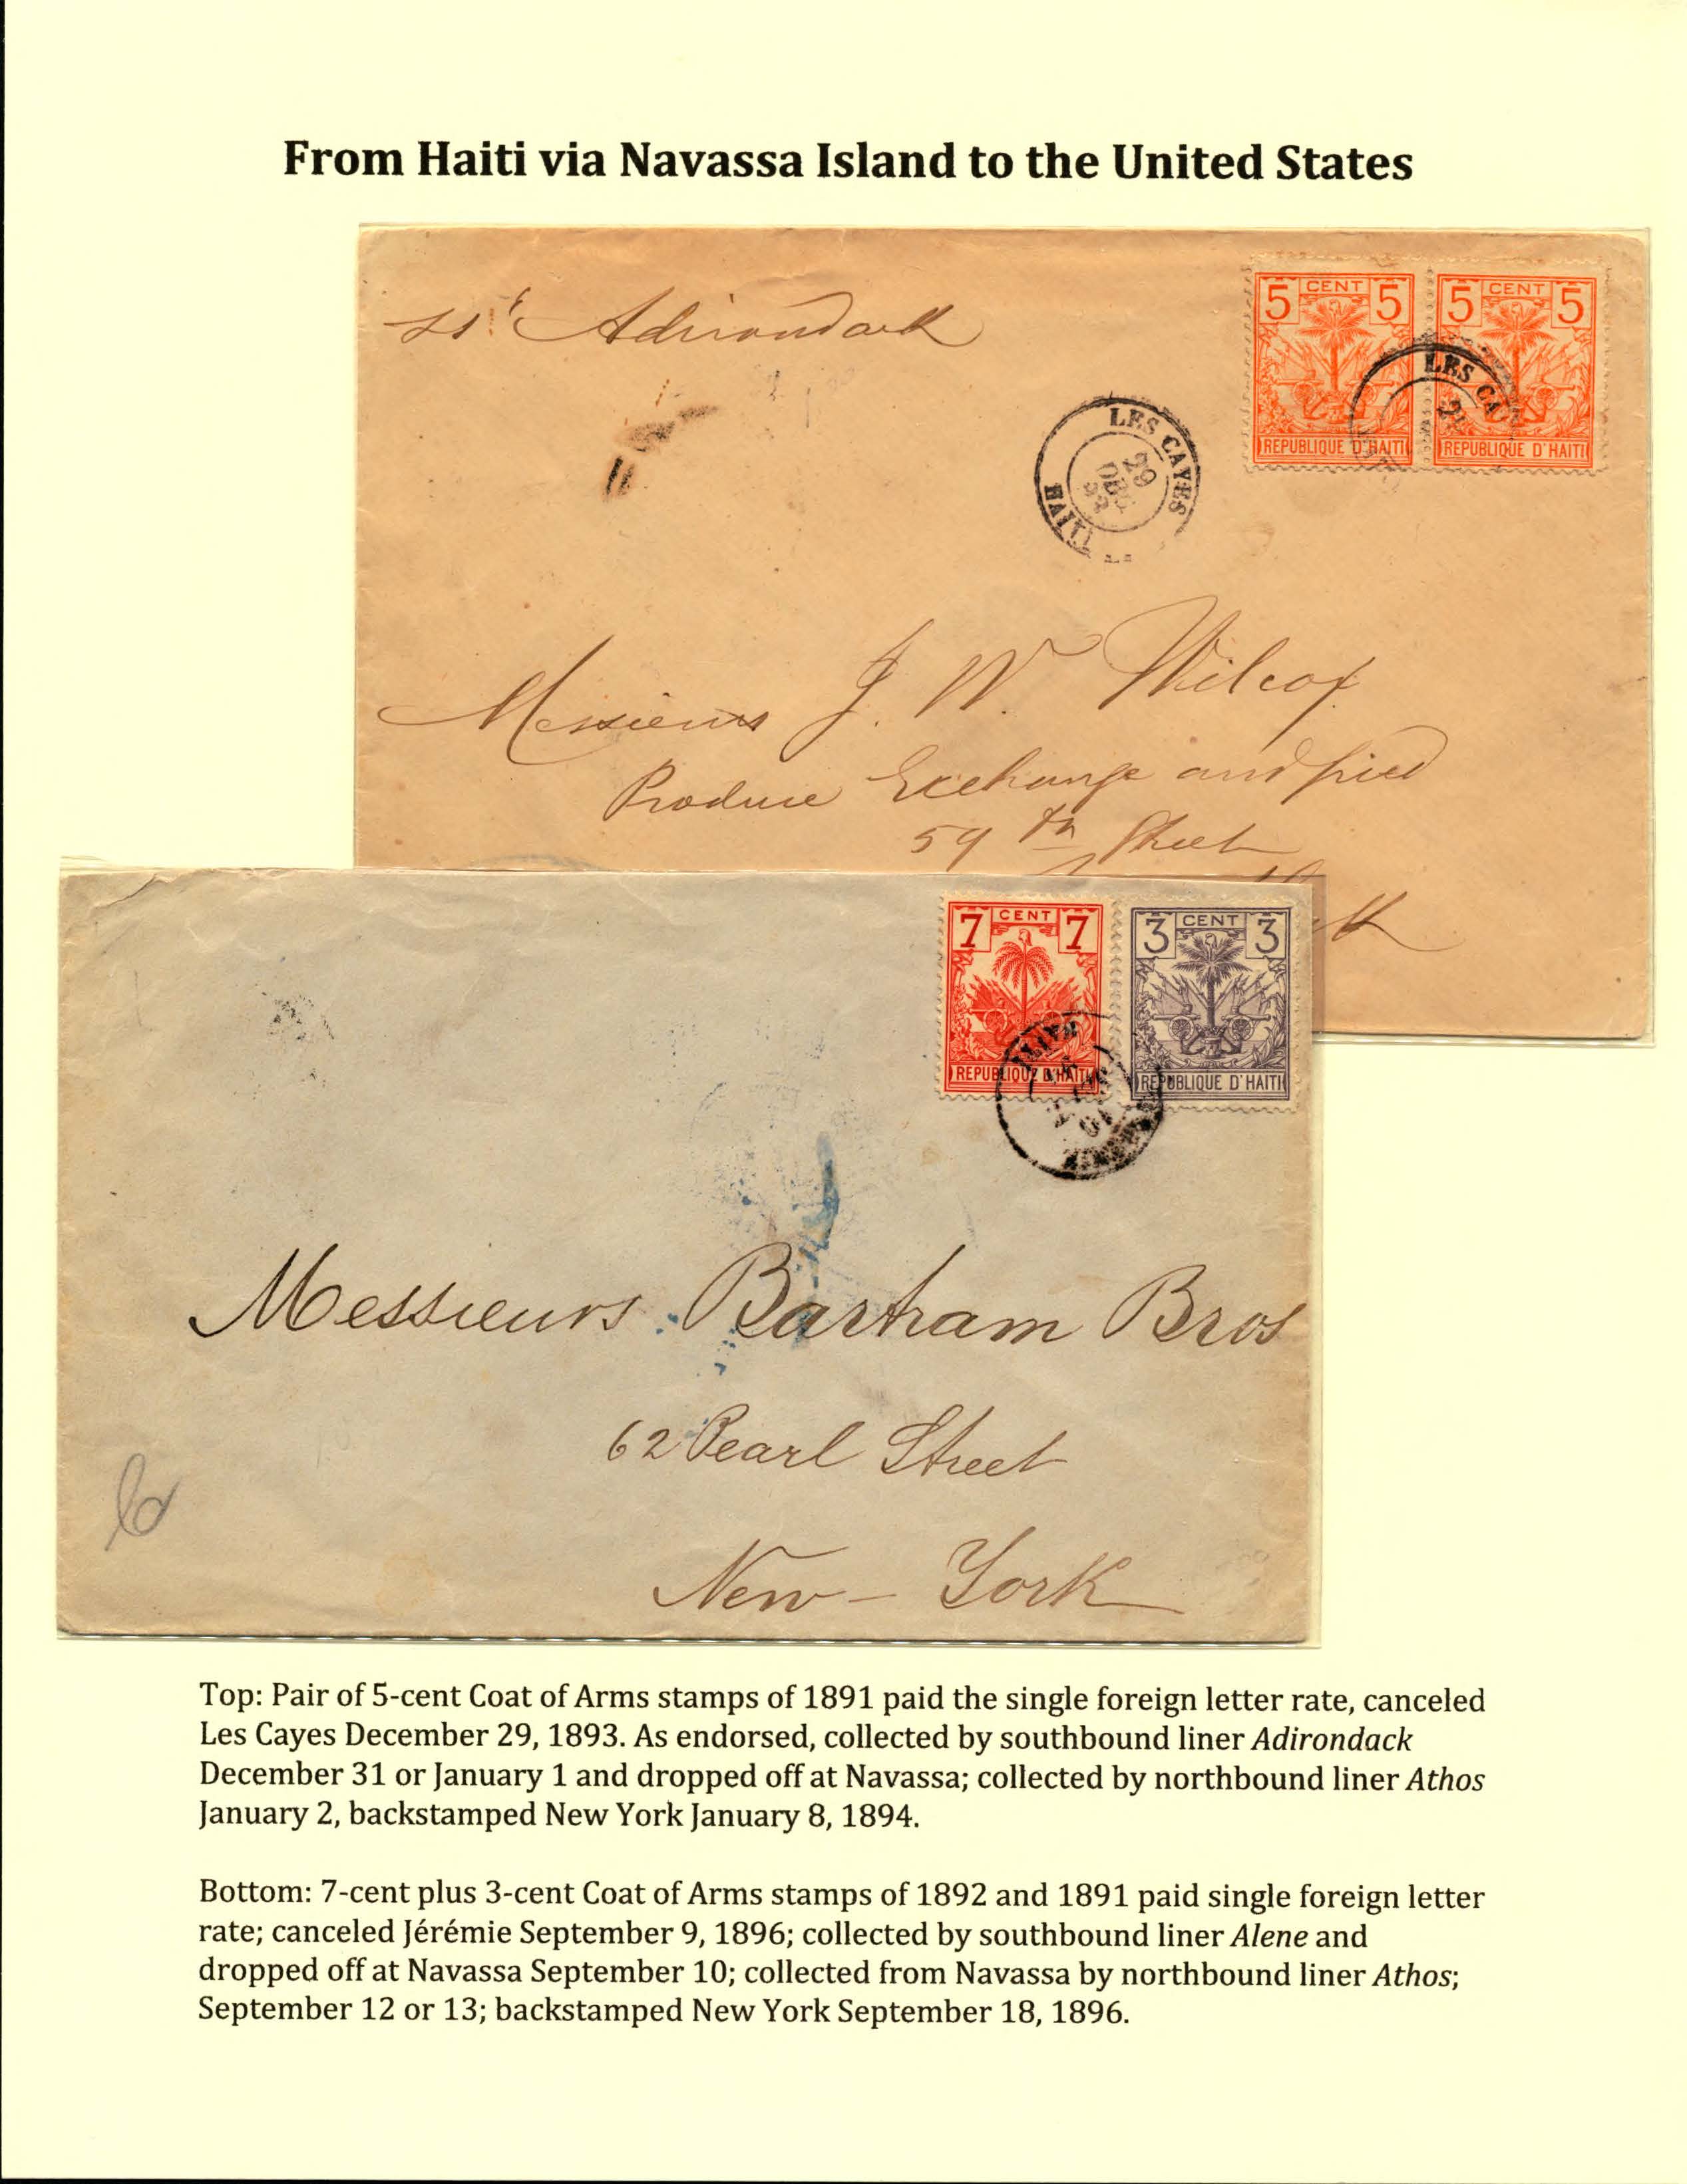 From Haiti via Navassa Island to the United States
ss Adirondack
5 CENT 5
REPUBLIQUE D'HAITI
5 CENT 5
REPUBLIQUE D'HAITI
LES CA
LES CAYES
29
DEC
93
HAITI
Messieurs J. W. Wilcox
Produce Exchange and
59 th Street
7 CENT 7
REPUBLIQUE D'HAITI
3 CENT 3
REPUBLIQUE D'HAITI
Messieurs Bartram Bros
62 Pearl Street
New-York
Top: Pair of 5-cent Coat of Arms stamps of 1891 paid the single foreign letter rate, canceled
Les Cayes December 29, 1893. As endorsed, collected by southbound liner Adirondack
December 31 or January 1 and dropped off at Navassa; collected by northbound liner Athos
January 2, backstamped New York January 8, 1894.
Bottom: 7-cent plus 3-cent Coat of Arms stamps of 1892 and 1891 paid single foreign letter
rate; canceled Jérémie September 9, 1896; collected by southbound liner Alene and
dropped off at Navassa September 10; collected from Navassa by northbound liner Athos;
September 12 or 13; backstamped New York September 18, 1896.